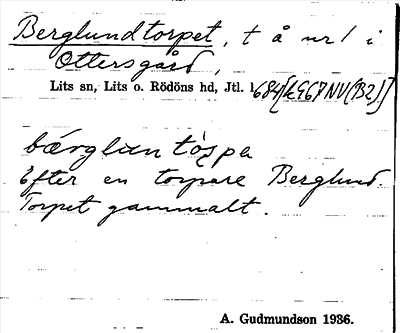 Berglundtorpet, t å nr 1 i
Ottersgård,
Lits sn, Lits o. Rödöns hd, Jtl. 1684[k967NV(B2)]
bærglun tòspa
Efter en torpare Berglund.
Torpet gammalt.
A. Gudmundson 1936.